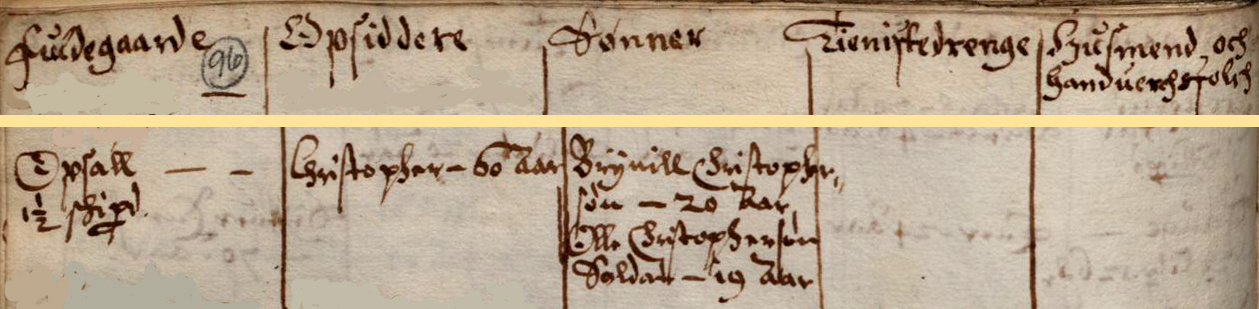 Fuldegaarde
96
Opsiddere
Sønner
Tienistedrenge
Husmend och
handuerchsfolch
Opsall — -
1½ skipd
Christopher - 60 Aar
Brynill Christopher-
søn - 20 Aar
Olle Christophersøn
Soldat - 19 Aar